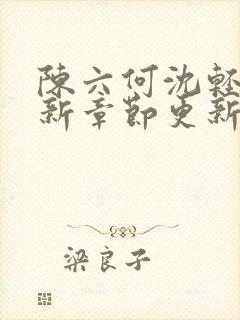 陳六何沈輕
新章節更新
梁良子